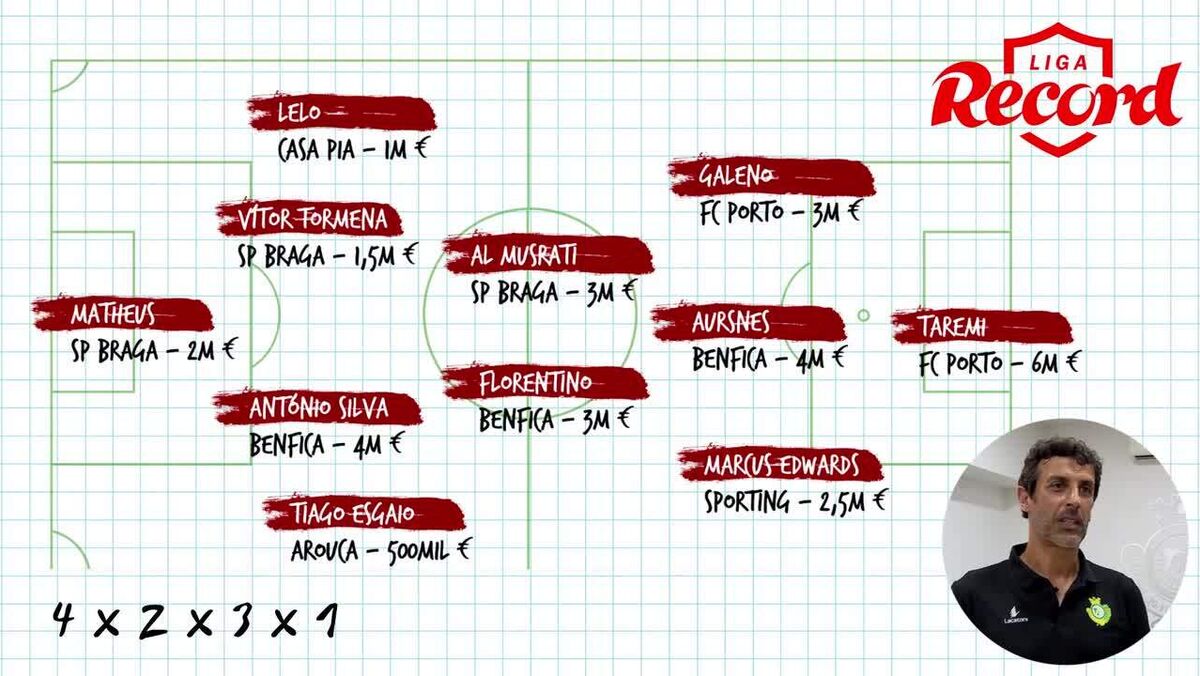 LIGA
Record
LELO
CASA PIA – 1M €
GALENO
FC PORTO – 3M €
VÍTOR TORMENA
SP BRAGA – 1,5M €
AL MUSRATI
SP BRAGA – 3M €
MATHEUS
SP BRAGA – 2M €
AURSNES
BENFICA – 4M €
TAREMI
FC PORTO – 6M €
FLORENTINO
BENFICA – 3M €
ANTÓNIO SILVA
BENFICA – 4M €
MARCUS EDWARDS
SPORTING – 2,5M €
TIAGO ESGAIO
AROUCA – 500MIL €
4 x 2 x 3 x 1
Lacatoni